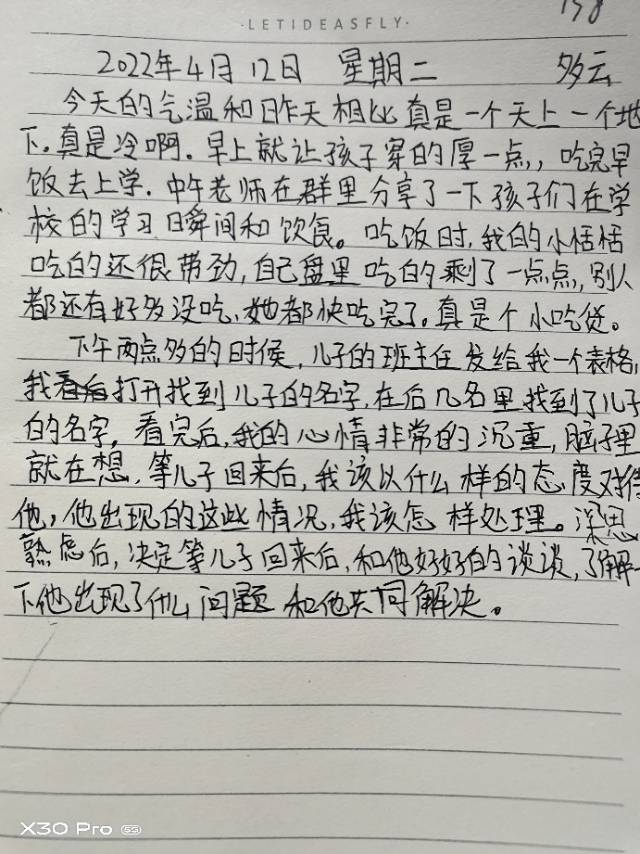 158
·LETIDEASFLY·
2022年4月12日 星期二 多云
今天的气温和昨天相比真是一个天上一个地
下。真是冷啊。早上就让孩子穿的厚一点,,吃完早
饭去上学.中午老师在群里分享了一下孩子们在学
校的学习瞬间和饮食。吃饭时,我的小恬恬
吃的还很带劲,自己盘里吃的剩了一点点,别人
都还有好多没吃、她都快吃完了。真是个小吃货。
下午两点多的时候,儿子的班主任发给我一个表格,
我打开找到儿子的名字,在后几名里找到了儿子
的名字。看完后,我的心情非常的沉重,脑子里
就在想,等儿子回来后,我该以什么样的态度对待
他,他出现的这些情况,我该怎样处理。深思
熟虑后,决定等儿子回来后,和他好好的谈谈,了解一
下他出现了什么问题和他共同解决。
X30 Pro 5G